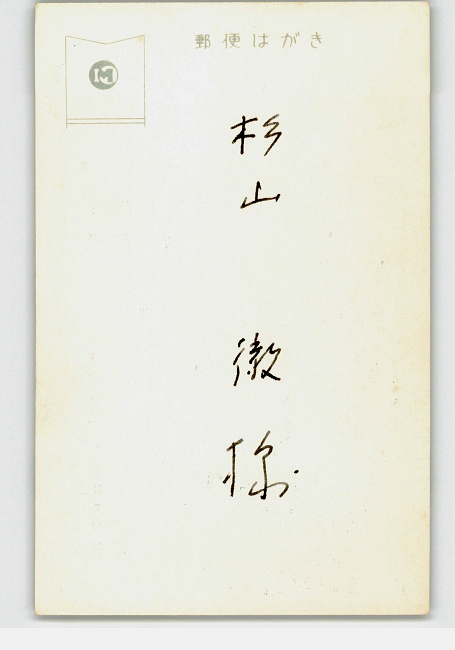 郵便はがき
杉山 徹様